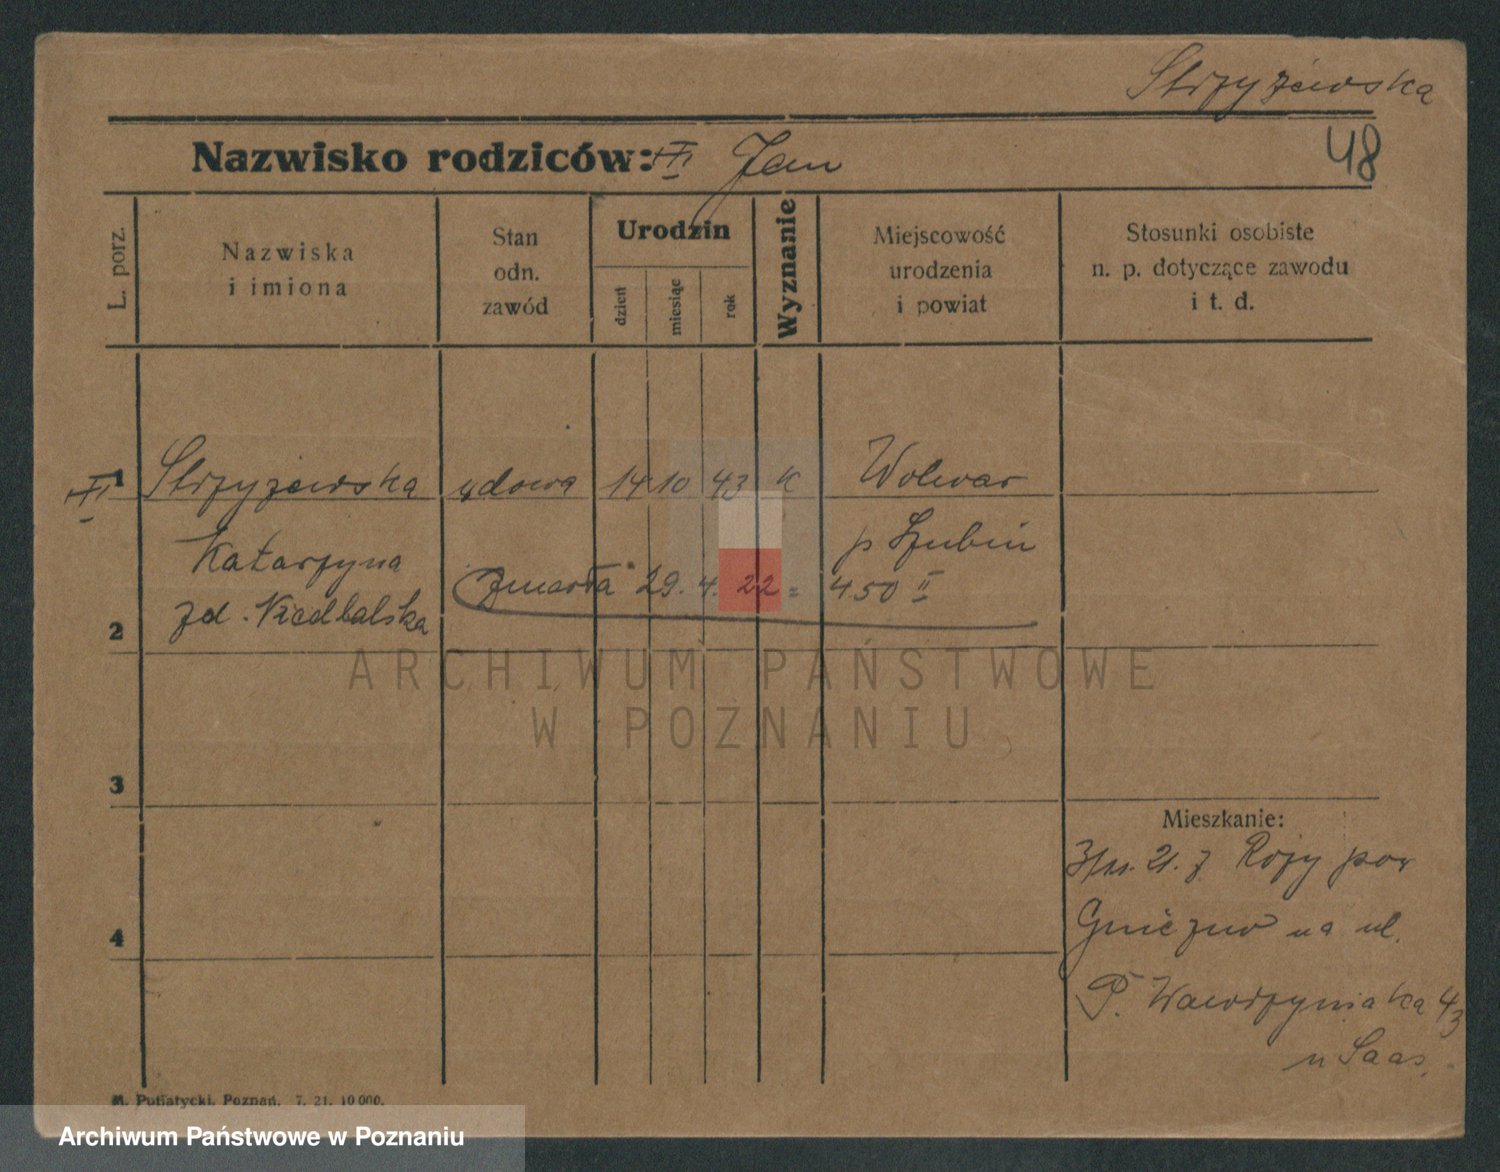 Strzyżewska
48
Nazwisko rodziców: Jan
L. porz.
Nazwiska
i imiona
Stan
odn.
zawód
Urodzin
dzień
miesiąc
rok
Wyznanie
Miejscowość
urodzenia
i powiat
Stosunki osobiste
n. p. dotyczące zawodu
i t. d.
1 Strzyżewska wdowa 14 10 43 K Wolwar
Katarzyna p Szubin
zmarła 29. 4. 22 = 450 II
2 zd. Niedbalska
ARCHIWUM PAŃSTWOWE
W POZNANIU
3
Mieszkanie:
21. z Rozy pow
4
Gniezno na ul.
P. Wawrzyniaka 43
u Saas.
M. Putiatycki, Poznań. 7. 21. 10 000.
Archiwum Państwowe w Poznaniu